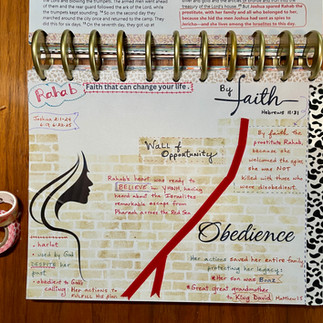 and blowing the trumpets. The armed men went ahead
of them and the rear guard followed the ark of the Lord, while
the trumpets kept sounding. So on the second day they
marched around the city once and returned to the camp. They
did this for six days. On the seventh day, they got up at
treasury of the Lord's house. But Joshua spared Rahab the
prostitute, with her family and all who belonged to her,
because she hid the men Joshua had sent as spies to
Jericho—and she lives among the Israelites to this day.
Rahab
Faith that can change your life
By
faith
Hebrews 11:31
Joshua 2:1-24
Wall of
Opportunity
By faith the
prostitute Rahab,
because she
welcomed the spies,
she was NOT
killed with those who
were disobedient.
Rahab's heart was ready to
BELIEVE in YHWH, having
heard about the Israelites
remarkable escape from
Pharaoh across the Red Sea
Obedience
Her actions saved her entire family
protecting her legacy:
*Her son was Boaz
*Great great grandmother
to King David. Matthew 1:5
. harlot
. used by God
DESPITE her
past
. obedient to God's
calling. Her actions to
FULFILL the plan